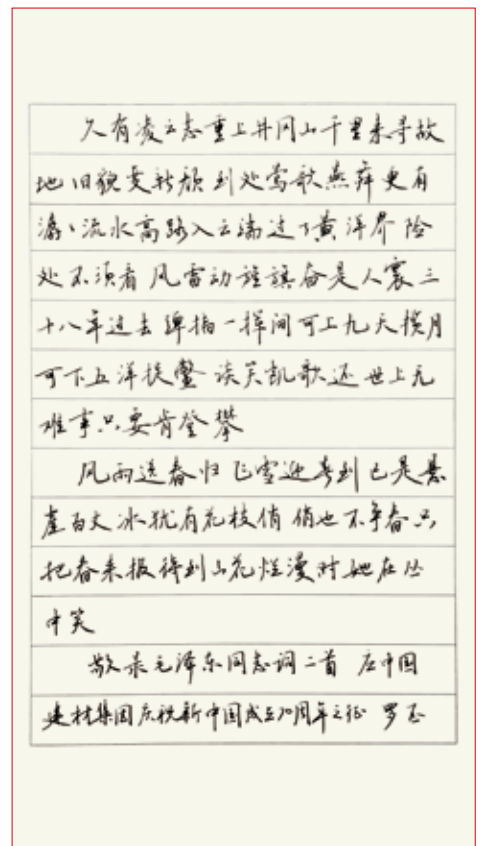 久有凌云志重上井冈山千里来寻故
地旧貌变新颜到处莺歌燕舞更有
潺潺流水高路入云端过了黄洋界险
处不须看风雷动旌旗奋是人寰三
十八年过去弹指一挥间可上九天揽月
可下五洋捉鳖谈笑凯歌还世上无
难事只要肯登攀
风雨送春归飞雪迎春到已是悬
崖百丈冰犹有花枝俏俏也不争春只
把春来报待到山花烂漫时她在丛
中笑
敬录毛泽东同志词二首 应中国
建材集团庆祝新中国成立70周年之征 罗